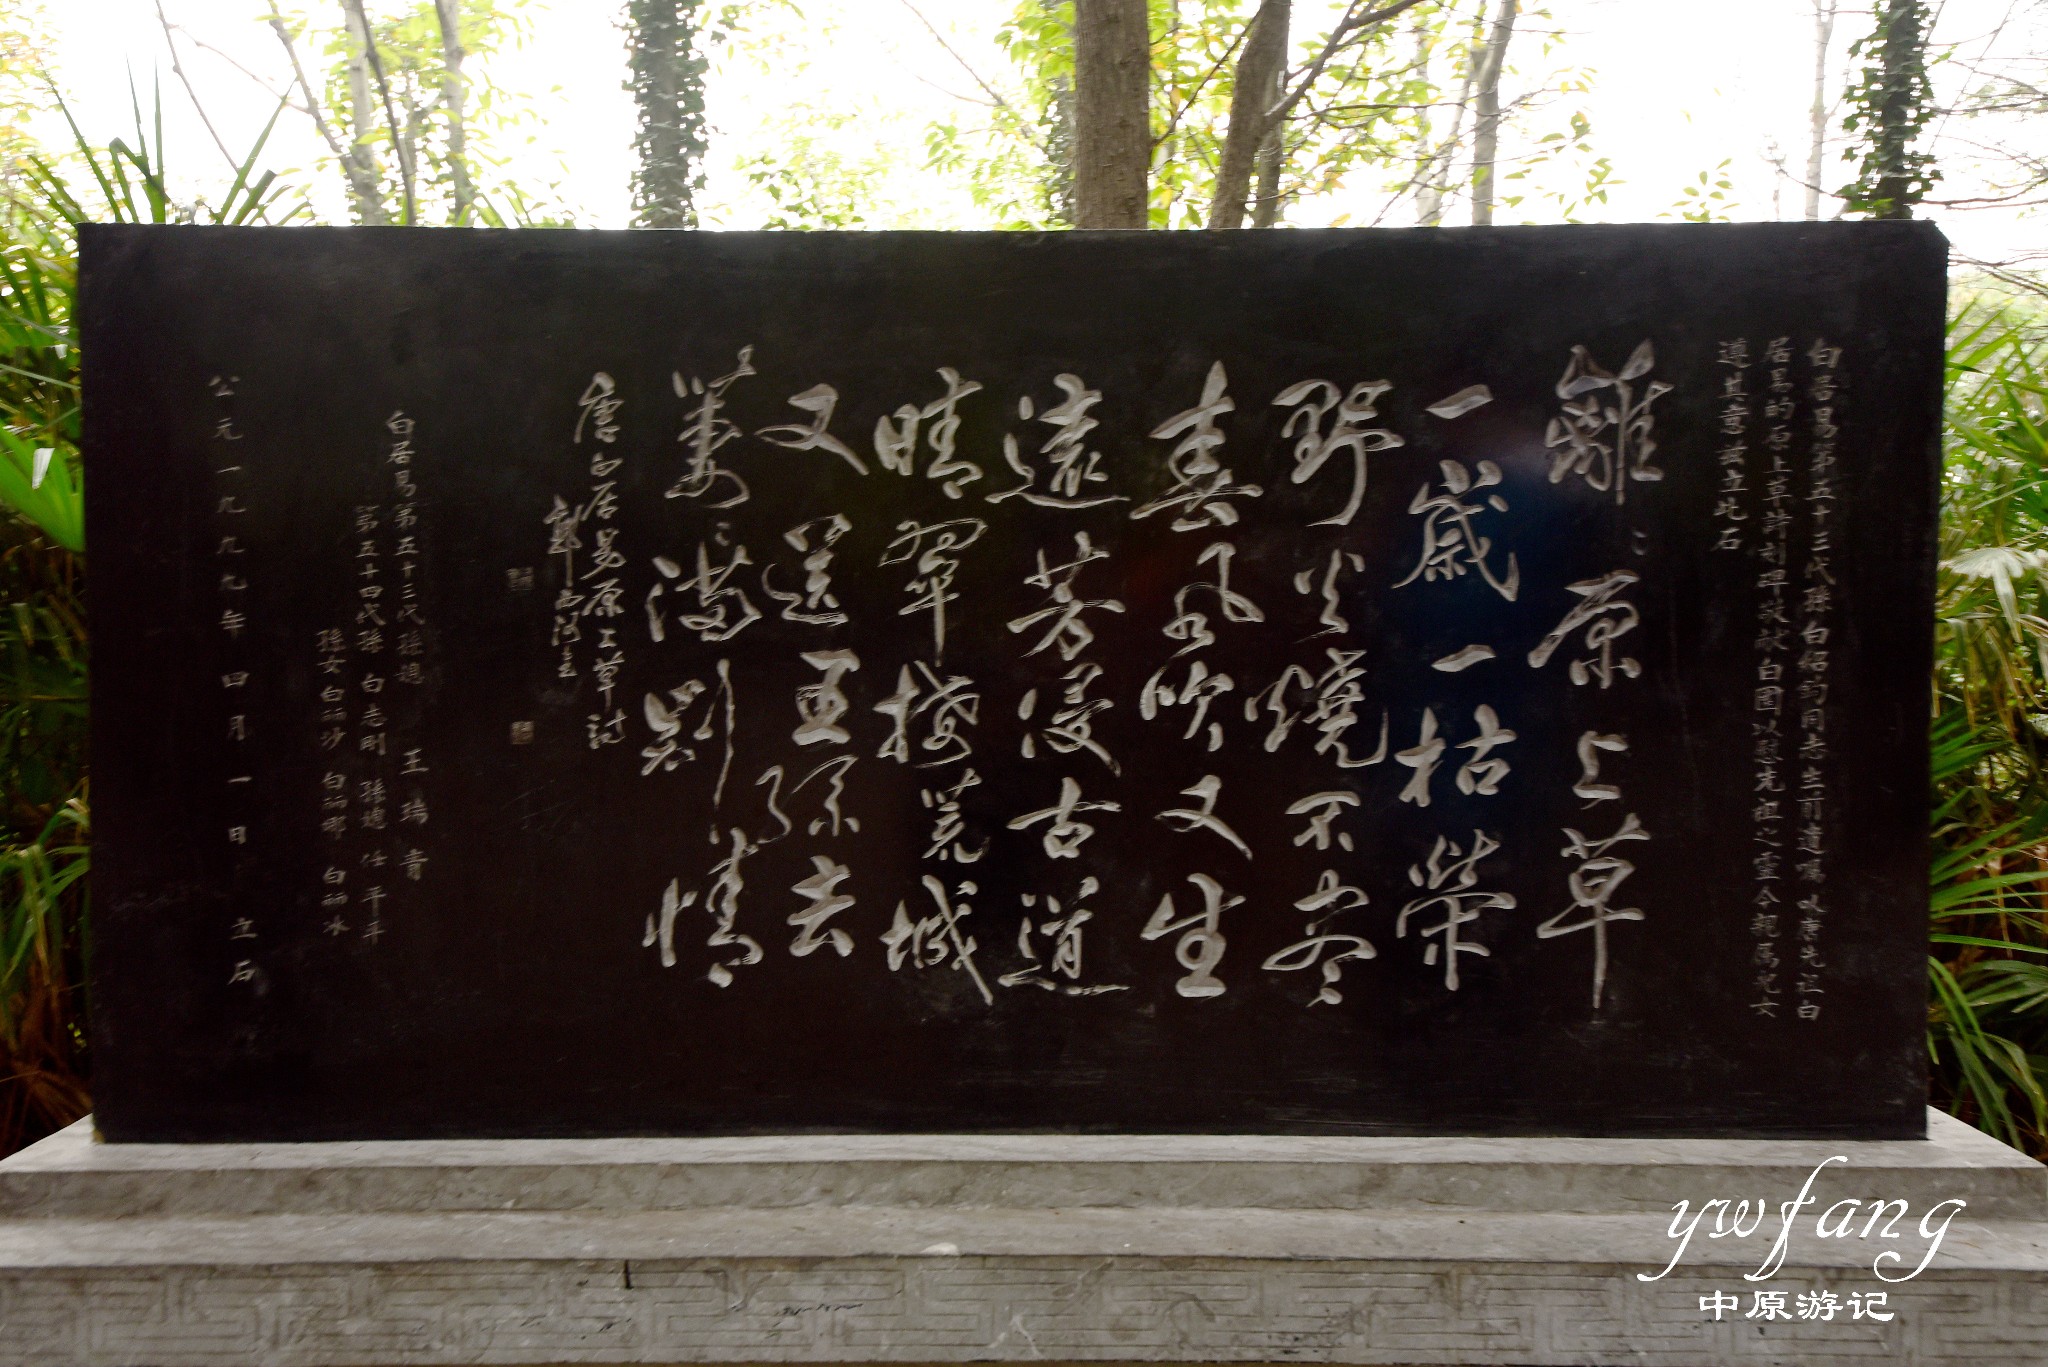 白居易第五十三代孫白紹钧同志生前遺嘱以唐先祖白
居易的原上草詩刻碑敬献白園以慰先祖之靈今親属兒女
遵其意茲立此石
離〻原上草
一歲一枯榮
野火燒不盡
春風吹又生
遠芳侵古道
晴翠接荒城
又送王孫去
萋〻滿別情
唐白居易原上草詩
白居易第五十三代孫媳 王瑞青
第五十四代孫 白志刚 孫媳 任平平
孫女 白丽沙 白丽娜 白丽冰
公元一九九九年四月一日 立石
ywfang
中原游记